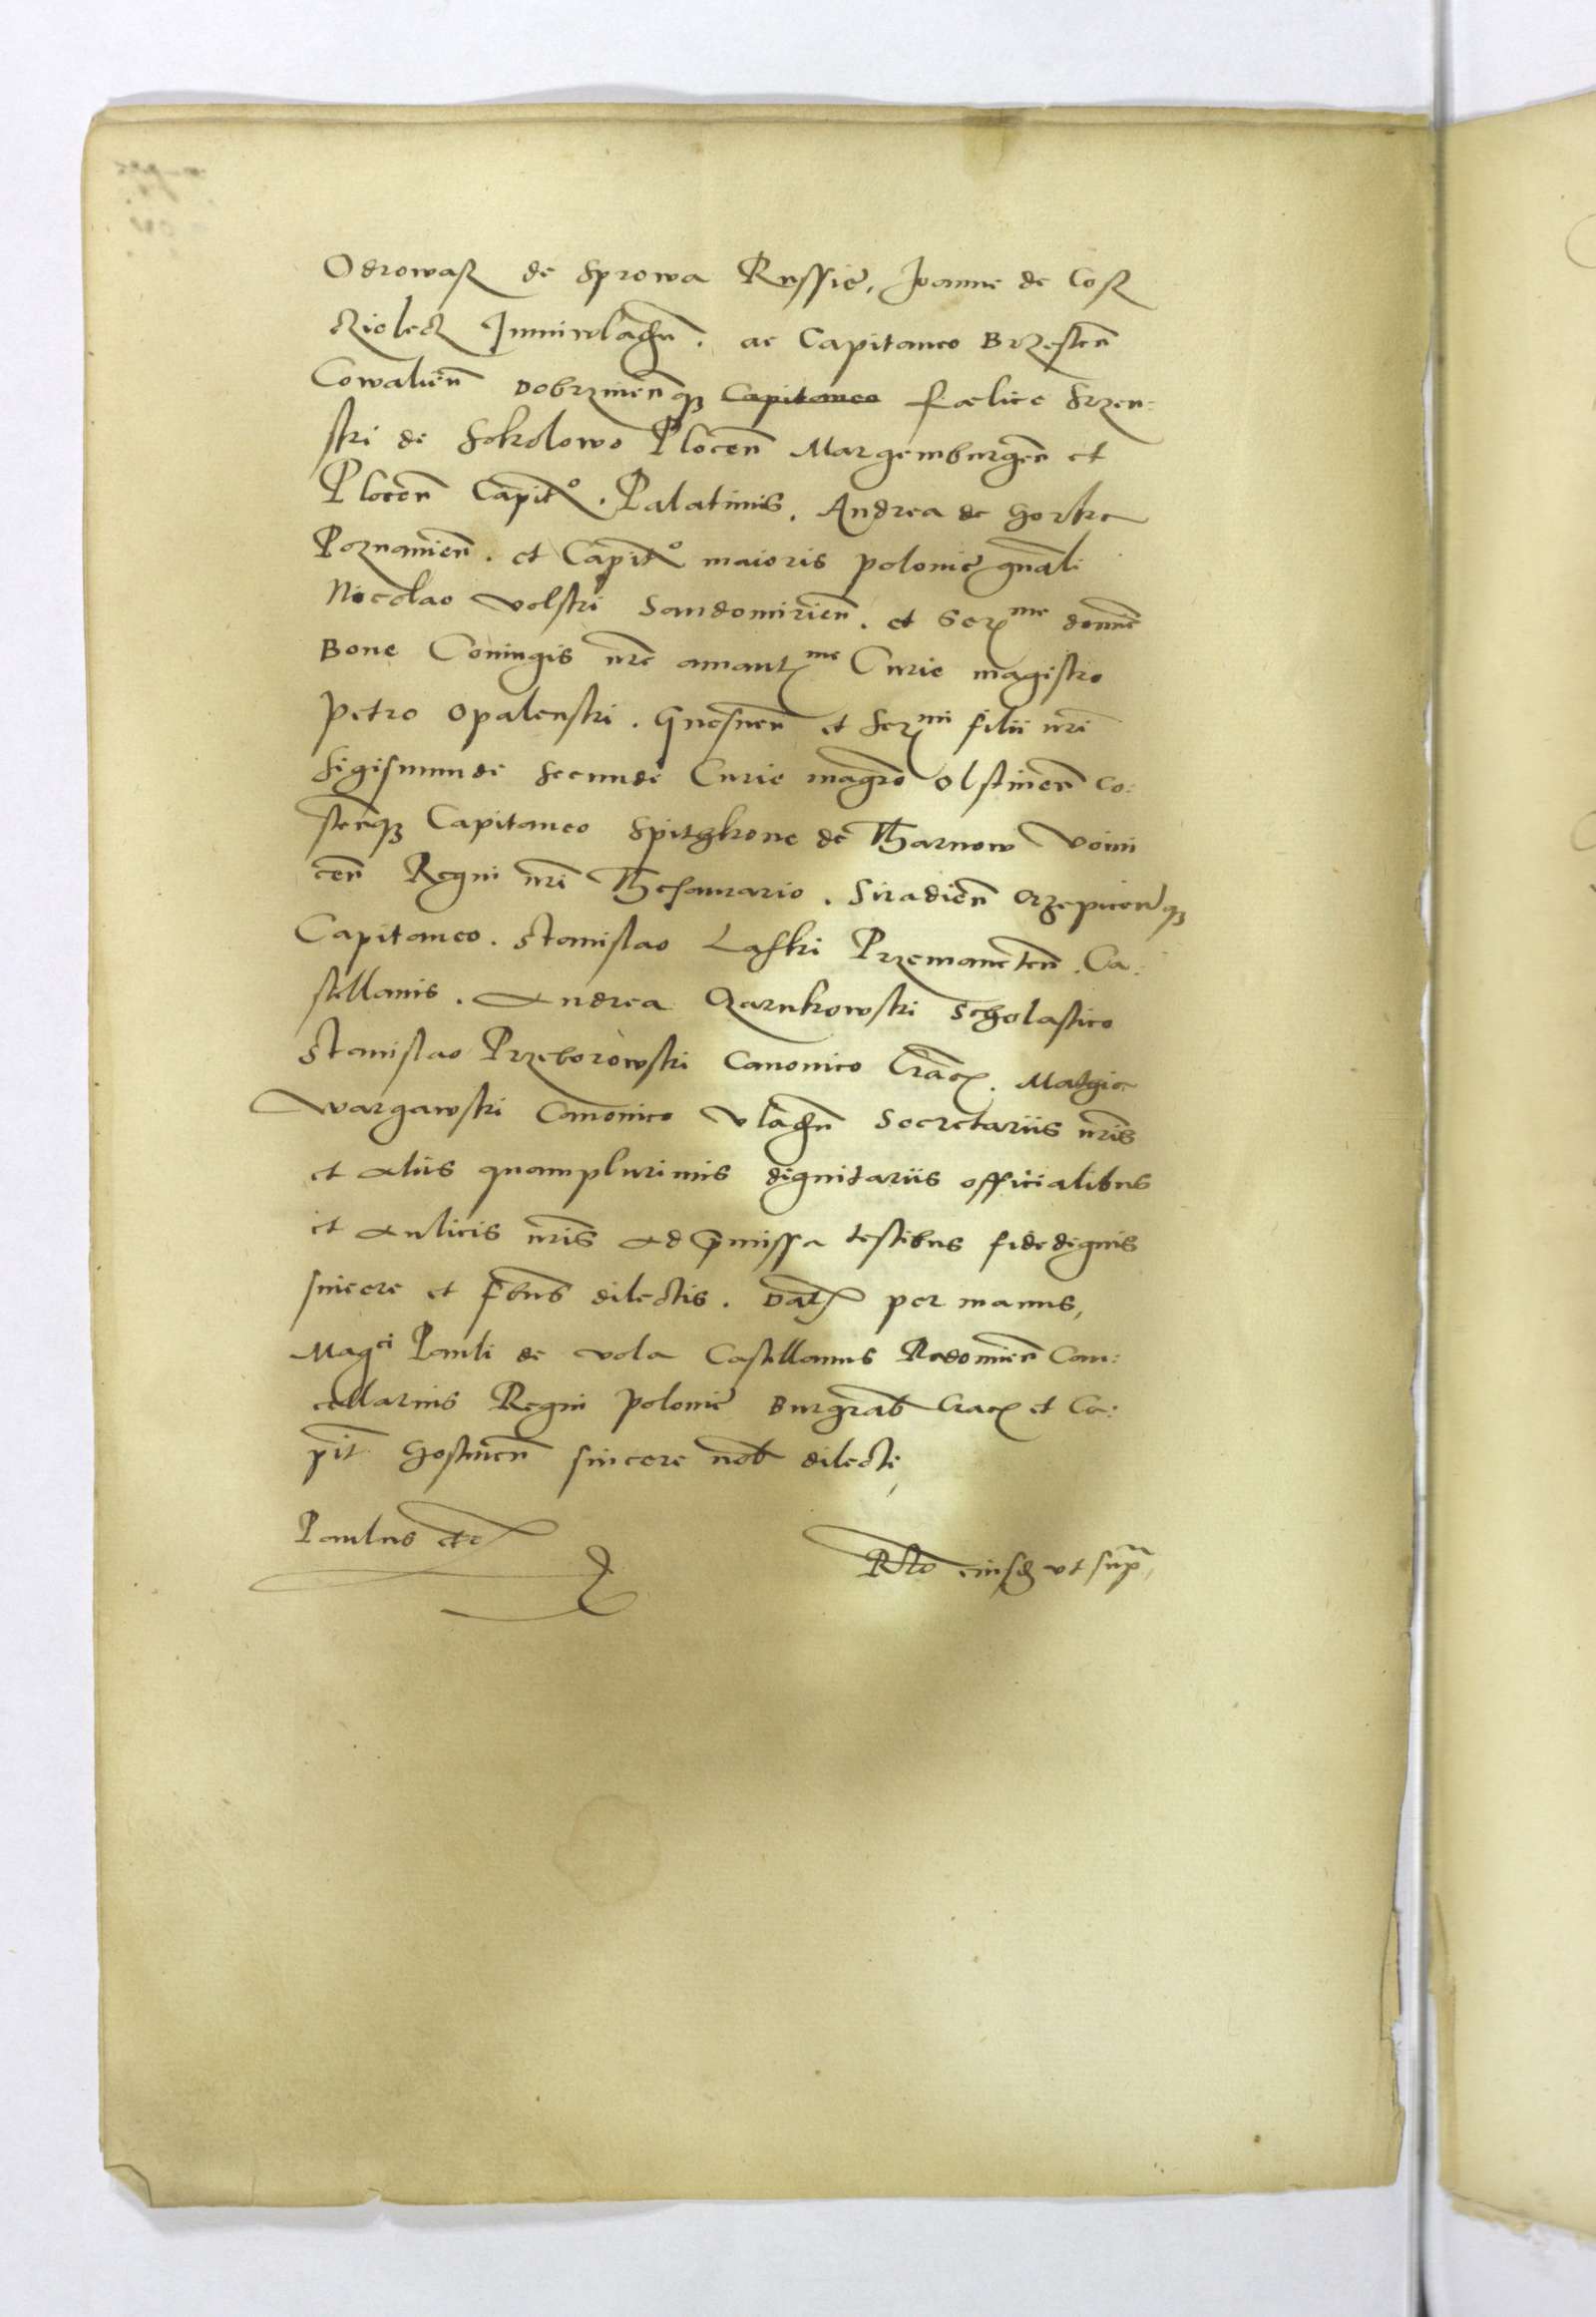 Odrowasz de Sprowa Russie, Joanne de Cosz
cziolecz Juniwladisln̄. ac Capitaneo Brzestēn
Cowaliēn Dobrzinēnq̨ Capitaneo Fœlice Srzen:
ski de Sokolowo Plocēn Margemburgēn et
Plocēn Capit̄o. Palatinis. Andrea de Gorka
Poznaniēn. et Capit̄o maioris polonie gnāli
Nicolao Volski Sandomiriēn. et Ser^me domnē
Bone Coniugis nrē amant^me Curie magistro
Petro Opalenski. Gnesnēn et Ser^mi filii nrī
Sigismundi Secundi Curie magrō Olstinēn Co:
stenq̨ Capitaneo Spithkone de Tharnow Voini
cēn Regni nrī Thesaurario. Siradiēn Crzepicenq̨
Capitaneo. Stanislao Laski Przemantēn. Ca:
stellanis. Andrea Czarnkowski Scholastico
Stanislao Przeborowski Canonico Crac̄. Mathia
Wargawski Canonico Vladn̄ Secretariis nrīs
et Aliis quamplurimis dignitariis officialibus
et Aulicis nrīs Ad p̄missa testibus fidedignis
sincere et f. bus dilectis. Dat̄ per manus,
Mag^ci Pauli de Vola Castellanus Radomiēn Can:
cellarius Regni polonie Burgrab̄ Crac̄ et Ca:
pit̄ Gostinēn sincere nob̄ dilecti,
Paulus etc
Rlō eiusd̄ ut sup̄,